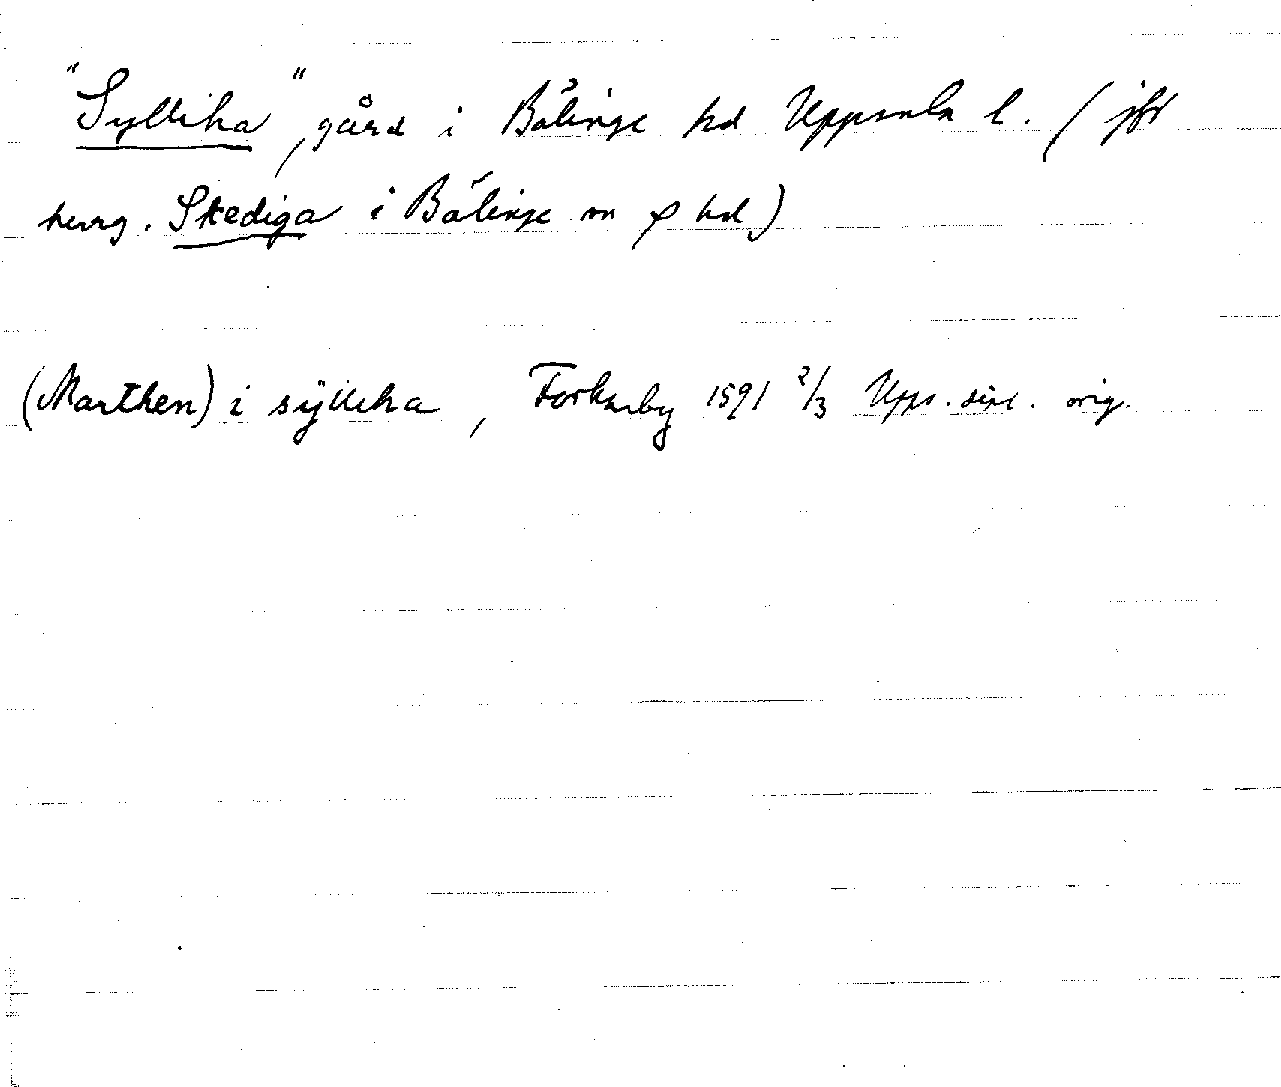 "Sylleha", gård i Bälinge hd Uppsala l. (jfr
herrg. Skediga i Bälinge sn o hd)
(Marthen) i sÿlleha, Forkarby 1591 2/3 Upps. orig.